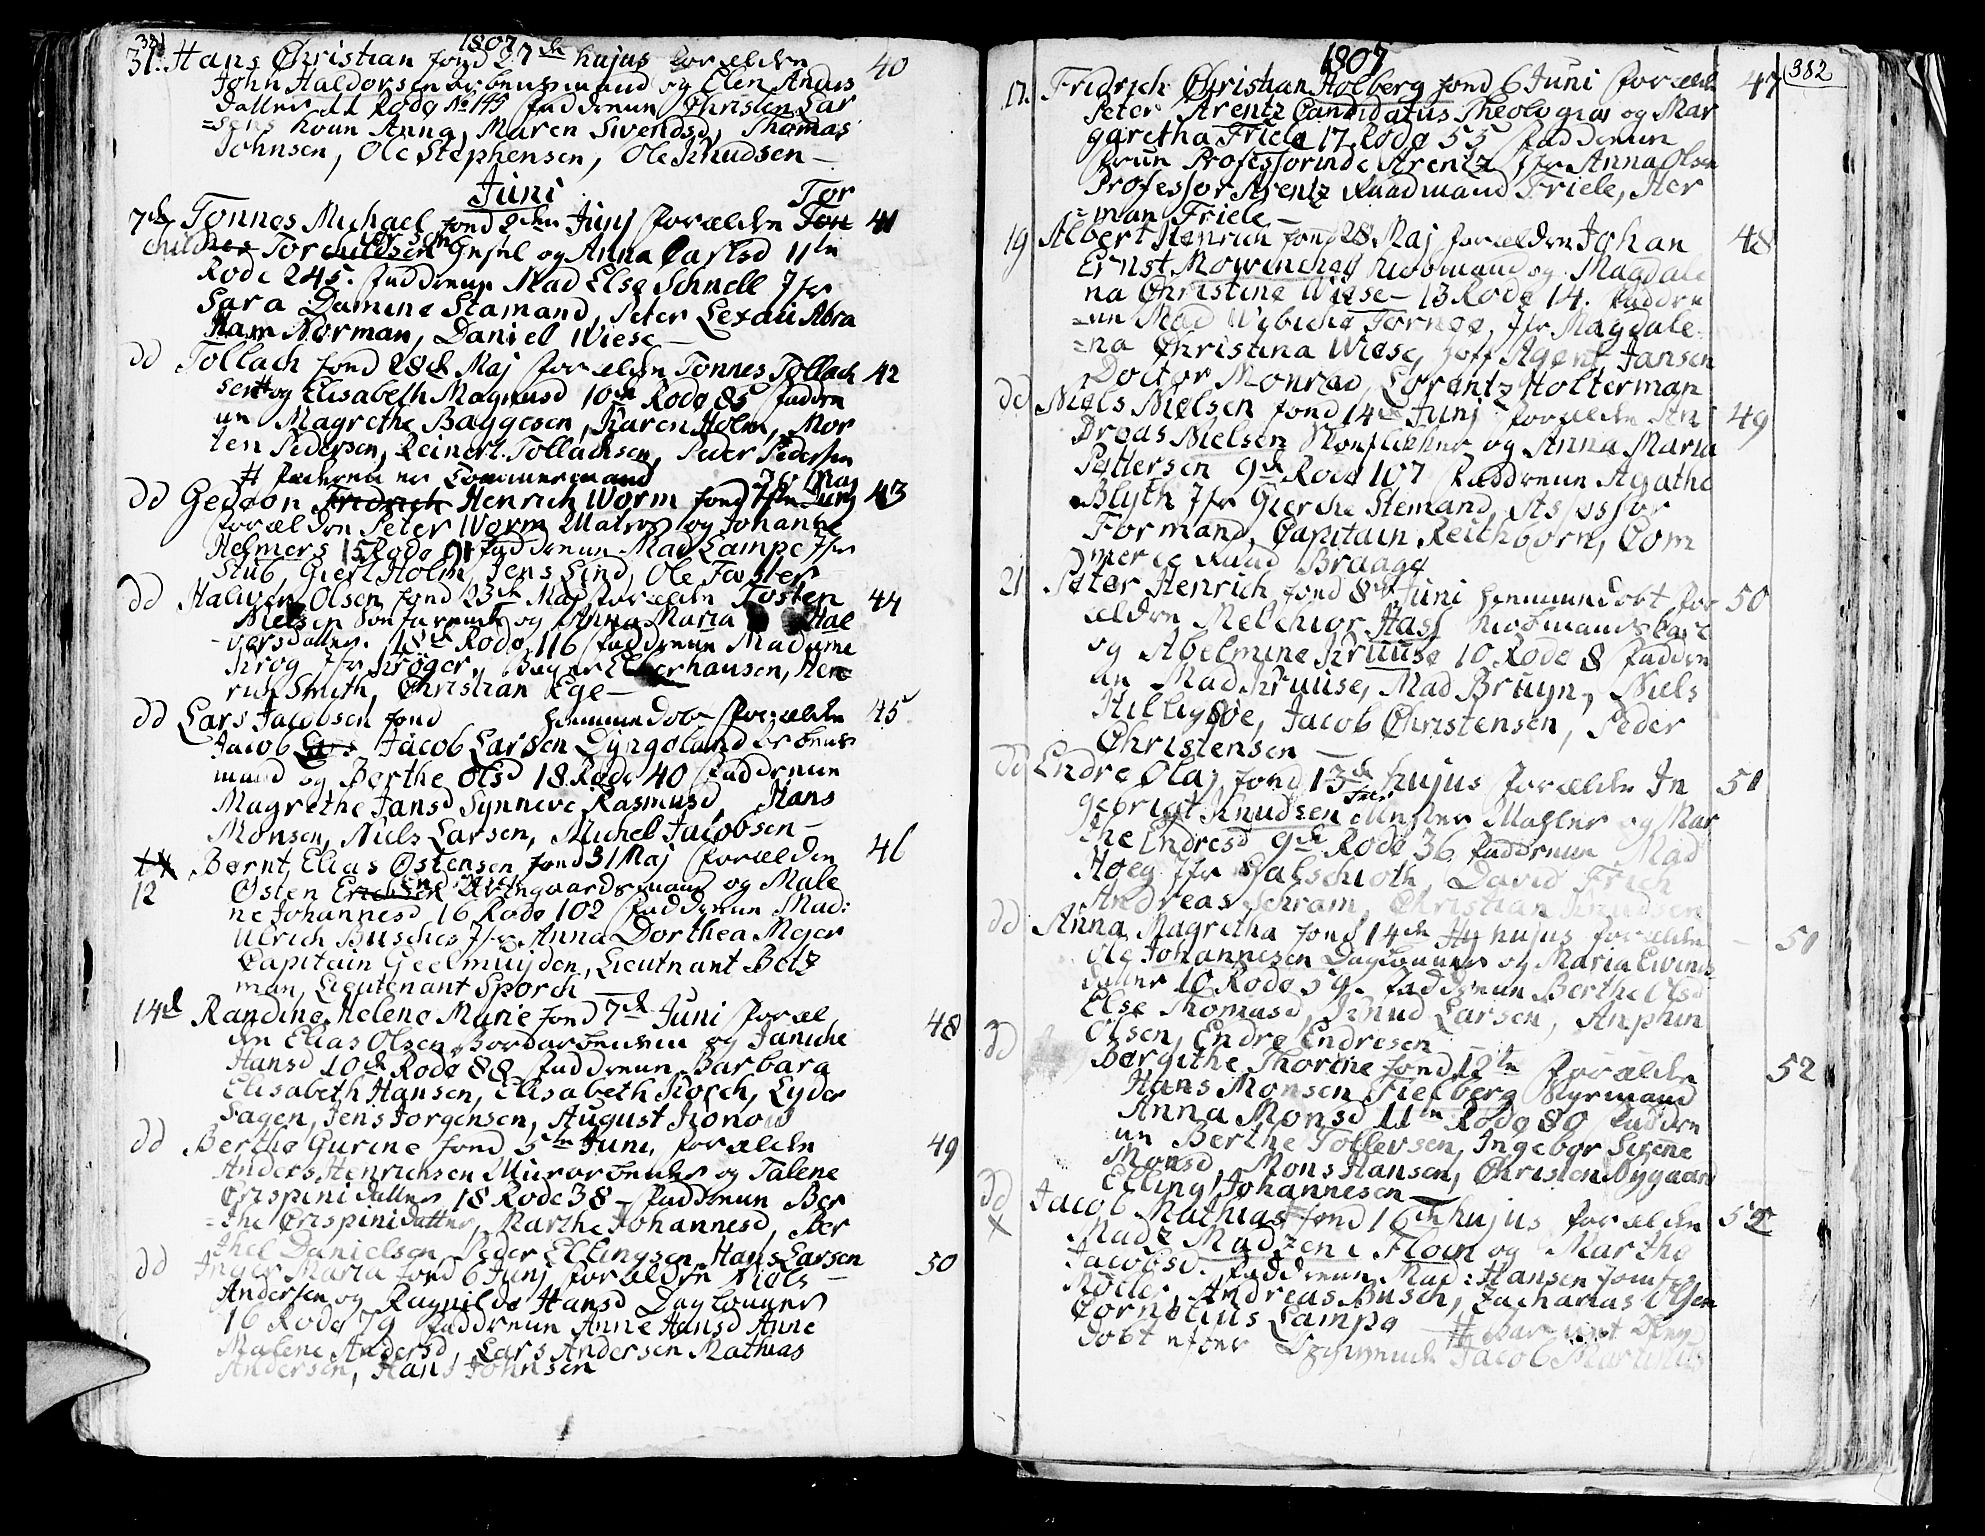 381
1807
31. Hans Christian fød 27de hujus Forældre 40
John Haldorsen Arbeidsmand og Elen Anders
datter 11 Rode No 145 Fadderne Christen Lar
=sens Kone Anna, Maren Sivendsd, Thomas
Johnsen, Ole Stephensen, Ole Knudsen —
Juni
7de Tønnes Michael fød 2den Junj Forældre Tor 41
childsen Giesel og Anna Carlsd 11te
Rode 245. Fadderne Mad Else Schnell Jfr
Sara Damine Stamand, Peter Lexau Abra
ham Norman, Daniel Wiese —
dd Tollach fød 28de Maj Forældre Tønnes Tollach 42
sen # og Elisabeth Magnusd 10de Rode 85 Faddre
ne Magrethe Baggesen, Karen Holm, Mor
ten Pedersen, Reinert Tollachsen, Peder Pedersen
# Faderen er Tømmermand
dd Gedeon Fredrich Henrich Worm fød 26 Maj 43
Forældre Peter Worm Matros og Johanne
Helmers 15 Rode 91 Fadderne Mad Lampe Jfr
Stub, Giert Holm, Jens Lind, Ole Faster
dd Halwor Olsen fød 23de Maj Forældre Tosten 44
Nielsen og Anna Maria Hal
versdatter 18de Rode 116 Fadderne Madame
Krog Jfr Krøger, Bager Ellerhausen, Hen
rich Smith, Christian Ege —
dd Lars Jacobsen fød hjemmedøb Forældre 45
Jacob Lars Jacob Larsen Dyngeland Arbeids
mand og Berthe Olsd 18 Rode 40 Fadderne
Magrethe Jansd Synneve Rasmusd, Hans
Monsen, Niels Larsen, Michel Jacobsen —
12 Bernt Elias Østensen fød 31 Maj Forældre 46
Østen Erichsen og Male
ne Johannesd 16 Rode 102 Fadderne Mad:
Ulrich Busches Jfr Anna Dorthea Mejer
Capitain Geelmuyden, Lieutnant Botz
man, Lieutenant Sporck
14de Randine Helene Marie fød 7de Juni Foræl 48
dre Elias Olsen Bordarbeider og Janiche
Hansd 10de Rode 88 Fadderne Barbara
Elisabeth Hansen, Elisabeth Korch, Lyder
Sagen, Jens Jørgensen, August Konow
dd Berthe Gurine fød 5te Juni Forældre 49
Anders Henrichsen Murarbeider og Talene
Crispini datter 18 Rode 38 — Fadderne Ber
=the Crispini datter, Marthe Johannesd, Ber
thel Danielsen, Peder Ellingsen, Hans Larsen
dd Inger Maria fød 6 Junj Forældre Niels 50
Andersen og Ragnilde Hansd Dagløner
16 Rode 79 Fadderne Anne Hansd Anne
Malene Andersd, Lars Andersen Mathias
Andersen, Hans Johnsen
1807
382
17. Fridrich Christian Holberg fød 6 Juni Foræld 47
Peter Arentz Candidatus Theologiæ og Mar
garetha Friele 17 Rode 55 Fadderne
Frue Professorinde Arentz Jfr Anna Olsen
Professor Arentz Raadmand Friele, Her
=man Friele —
19 Albert Henrich fød 28 Maj Forældre Johan 48
Ernst Mowinchel Kiøbmand og Magdale
na Christine Wiese — 13 Rode 14. Faddre
=ne Mad Wibiche Tornøe, Jfr Magdale
=na Christina Wiese, Hoff Agent Jansen
Doctor Monrad, Lorentz Holterman
dd Niels Nielsen fød 14de Junj Forældre An 49
dreas Nielsen og Anna Maria
Pettersen 9de Rode 107 Fadderne Agatha
Blyth Jfr Gierche Stemand, Assessor
Formand, Capitain Reichborn, Com
merce Raad Braage
21 Peter Henrich fød 8de Juni hjemmedøbt For 50
ældre Melchior Hass
og Abelmine Kruuse 10 Rode 8 Faddre
ne Mad Kruuse, Mad Bruyn, Niels
Hilleyøe, Jacob Christensen, Peder
Christensen —
dd Endre Olaj fød 13de hujus Forældre In 51
gebrigt Knudsen Mester Mahler og Mar
the Endresd 9de Rode 36 Fadderne Mad
Høeg Jfr Galschiøth, David Frich
Andreas Schram, Christian Knudsen
dd Anna Magretha fød 14de hujus Forældre 51
Ole Johannesen Dagløner og Maria Evinds
datter 10 Rode 59. Fadderne Berthe Olsd
Else Thomasd, Knud Larsen, Anphin
Olsen, Endre Endresen
dd Bergithe Thorine fød 12te Forældre 52
Hans Monsen Fielberg Styrmand
Anna Monsd 11te Rode 80 Faddre
ne Berthe Tollevsen, Ingebor Serene
Monsd, Mons Hansen, Christen Nygaard
Elling Johannesen
dd Jacob Mathias fød 16de hujus Forældre 52
x Madz Madzen i Floen og Marthe
Jacobsd. Fadderne Mad: Hansen Jomfr
Møller, Andreas Busch, Zacharias Olsen
Cornelius Lampe —
døbt efter Jacob Martinus